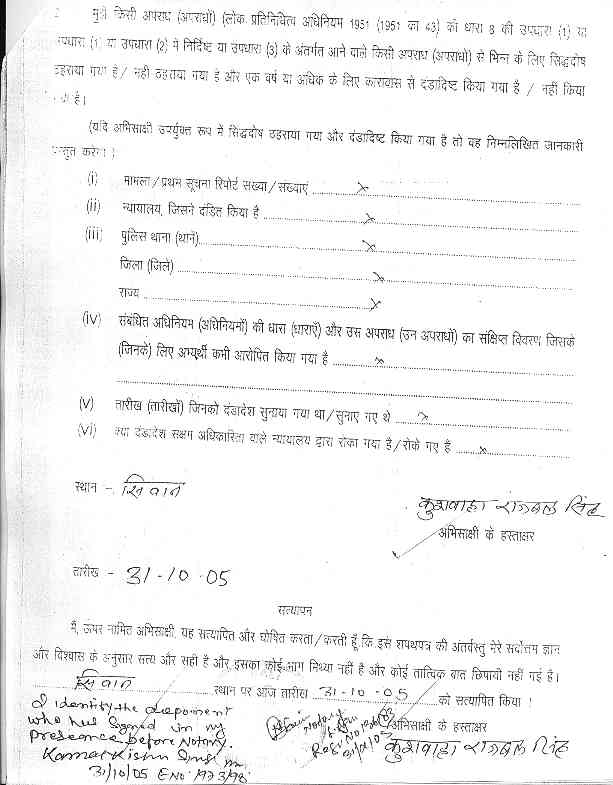 2 मुझे किसी अपराध (अपराधों) (लोक प्रतिनिधित्व अधिनियम 1951 (1951 का 43) की धारा 8 की उपधारा (1) या
उपधारा (1) या उपधारा (2) में निर्दिष्ट या उपधारा (3) के अंतर्गत आने वाले किसी अपराध (अपराधों) से भिन्न के लिए सिद्धदोष
ठहराया गया है / नहीं ठहराया गया है और एक वर्ष या अधिक के लिए कारावास से दंडादिष्ट किया गया है / नहीं किया
गया है।
(यदि अभिसाक्षी उपर्युक्त रूप में सिद्धदोष ठहराया गया और दंडादिष्ट किया गया है तो वह निम्नलिखित जानकारी
प्रस्तुत करेगा।)
(i) मामला / प्रथम सूचना रिपोर्ट संख्या / संख्याएं ........ x
(ii) न्यायालय, जिसने दंडित किया है ........ x
(iii) पुलिस थाना (थाने) ........ x
जिला (जिले) ........ x
राज्य ........ x
(iv) संबंधित अधिनियम (अधिनियमों) की धारा (धाराएँ) और उस अपराध (उन अपराधों) का संक्षिप्त विवरण जिसके
(जिनके) लिए अभ्यर्थी कभी आरोपित किया गया है ........ x
(v) तारीख (तारीखों) जिनको दंडादेश सुनाया गया था / सुनाए गए थे ........ x
(vi) क्या दंडादेश सक्षम अधिकारिता वाले न्यायालय द्वारा रोका गया है / रोके गए है ........ x
स्थान - सिवान
कुशवाहा राजबल सिंह
अभिसाक्षी के हस्ताक्षर
तारीख - 31-10-05
सत्यापन
मैं, ऊपर नामित अभिसाक्षी, यह सत्यापित और घोषित करता / करती हूँ कि इस शपथपत्र की अंतर्वस्तु मेरे सर्वोत्तम ज्ञान
और विश्वास के अनुसार सत्य और सही है और इसका कोई भाग मिथ्या नहीं है और कोई तात्विक बात छिपायी नहीं गई है।
सिवान स्थान पर आज तारीख 31-10-05 को सत्यापित किया !
I identity the deponent
who has signed in my
presence before Notary.
31/10/05 E No. 1973/98
Notary
अभिसाक्षी के हस्ताक्षर
कुशवाहा राजबल सिंह